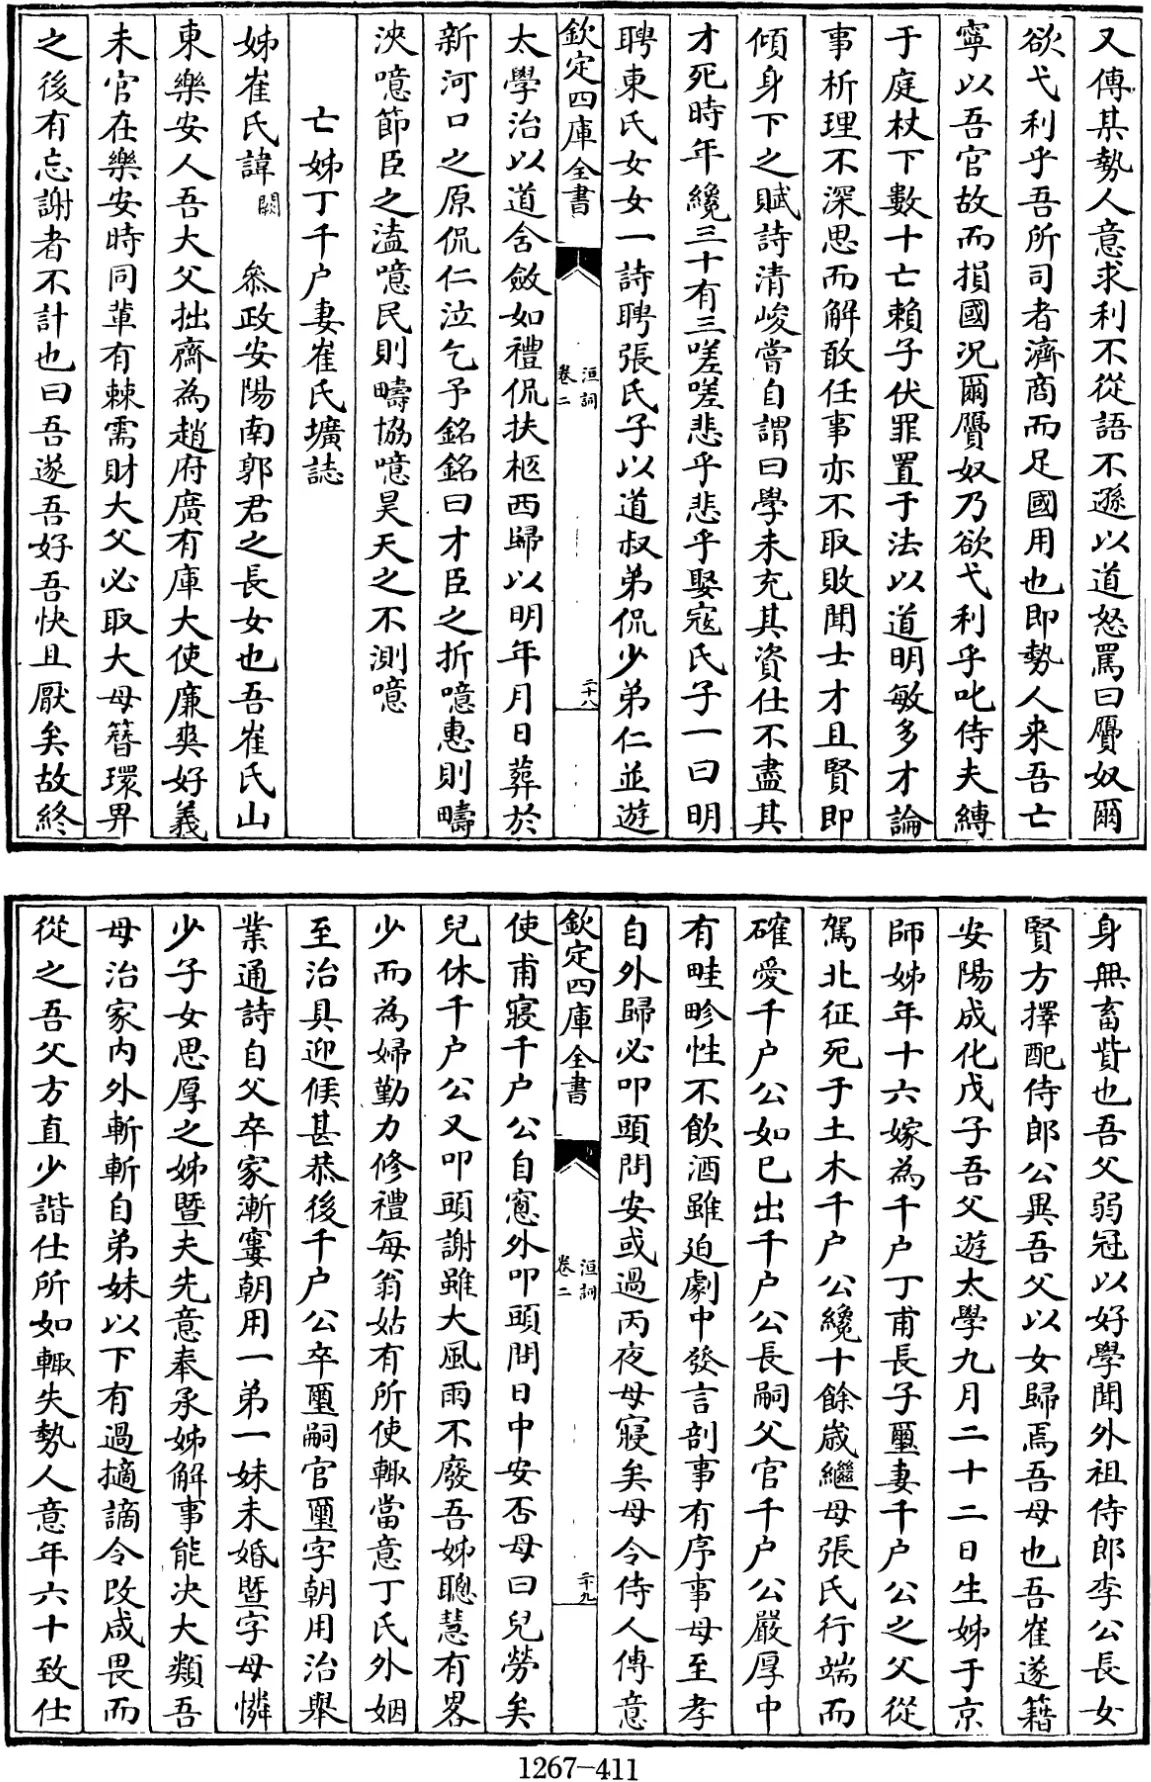 又傳其勢人意求利不從語不遜以道怒罵曰贗奴爾
欲弋利乎吾所司者濟商而足國用也即勢人来吾亡
寧以吾官故而損國况爾贗奴乃欲弋利乎叱侍夫縛
于庭杖下數十亡賴子伏罪置于法以道明敏多才論
事析理不深思而解敢任事亦不取敗聞士才且賢即
傾身下之賦詩清峻嘗自謂曰學未充其資仕不盡其
才死時年纔三十有三嗟嗟悲乎悲乎娶寇氏子一曰明
聘東氏女女一詩聘張氏子以道叔弟侃少弟仁並遊
欽定四庫全書 洹詞 卷二 二十八
太學治以道含斂如禮侃扶柩西歸以明年月日葬於
新河口之原侃仁泣乞予銘銘曰才臣之折噫惠則疇
泱噫節臣之溘噫民則疇協噫昊天之不測噫
亡姊丁千户妻崔氏壙誌
姊崔氏諱 闕 叅政安陽南郭君之長女也吾崔氏山
東樂安人吾大父拙齋為趙府廣有庫大使廉㪅好義
未官在樂安時同輩有棘需財大父必取大母簪環畀
之後有忘謝者不計也曰吾遂吾好吾快且厭矣故終
身無畜貲也吾父弱冠以好學聞外祖侍郎李公長女
賢方擇配侍郎公異吾父以女歸焉吾母也吾崔遂籍
安陽成化戊子吾父遊太學九月二十二日生姊于京
師姊年十六嫁為千户丁甫長子璽妻千户公之父從
駕北征死于土木千户公纔十餘歲繼母張氏行端而
確愛千户公如已出千户公長嗣父官千户公嚴厚中
有畦畛性不飲酒雖廹劇中發言剖事有序事母至孝
自外歸必叩頭問安或過丙夜母寢矣母令侍人傳意
欽定四庫全書 洹詞 卷二 二十九
使甫寢千户公自窻外叩頭問日中安否母曰兒勞矣
兒休千户公又叩頭謝雖大風雨不廢吾姊聰慧有畧
少而為婦勤力修禮每翁姑有所使輙當意丁氏外姻
至治具迎候甚恭後千户公卒璽嗣官璽字朝用治舉
業通詩自父卒家漸窶朝用一弟一妹未婚曁字母憐
少子女思厚之姊曁夫先意奉承姊解事能决大類吾
母治家内外斬斬自弟妹以下有過擿謫令改咸畏而
從之吾父方直少諧仕所如輙失勢人意年六十致仕
1267—411